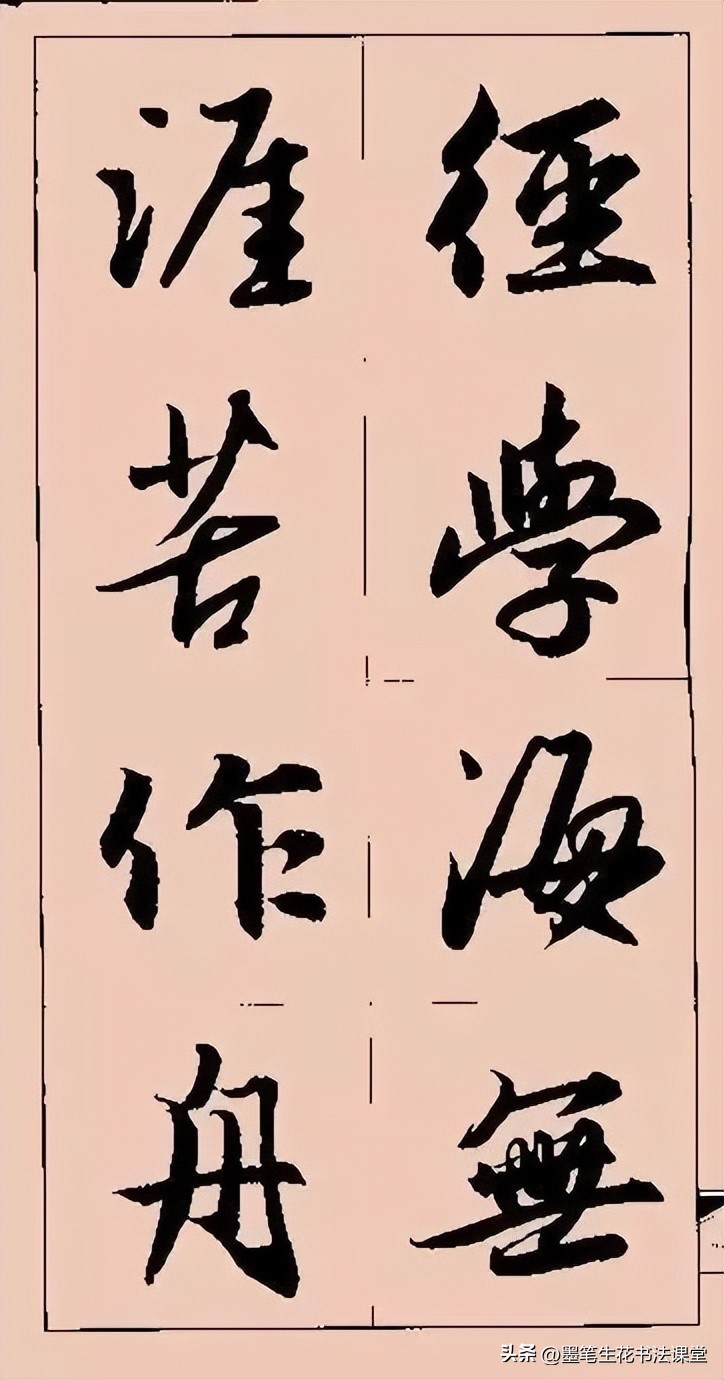 徑學海無
涯苦作舟
头条 @墨笔生花书法课堂